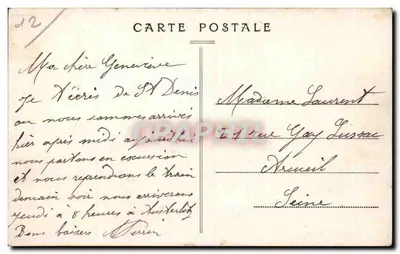 12
CARTE POSTALE
Ma chère Geneviève
Je t'écris de St Denis
ou nous sommes arrivés
hier après midi aujourd'hui
nous partons en excursion
et nous reprendrons le train
demain soir nous arriverons
jeudi a 8 heures à Austerlitz
Bons baisers
Madame Laurent
21 rue Gay Lussac
Arcueil
Seine